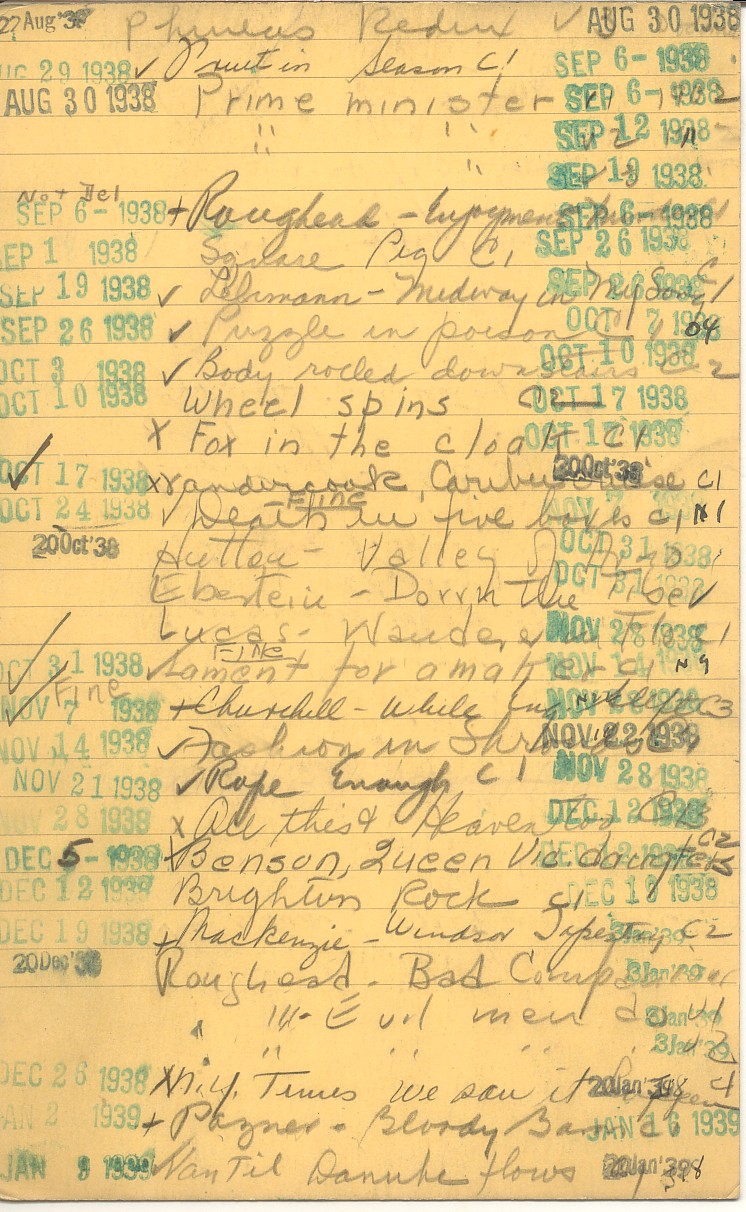 27 Aug '38 Phineas Redux V AUG 30 1938
AUG 29 1938 ✓ Fruit in Season C1 SEP 6 - 1938
AUG 30 1938 Prime minister V1 SEP 6 - 1938
" " V2 SEP 12 1938
" SEP 19 1938
Not Del
SEP 6 - 1938 + Roughead - Enjoyment SEP 6 - 1938
SEP 1 1938 Square Peg C1 SEP 26 1938
SEP 19 1938 ✓ Lehmann - Midway in My Song C1 SEP 26 1938
SEP 26 1938 ✓ Puzzle in poison C1 OCT 7 1938
OCT 3 1938 ✓ Body rolled downstairs C2 OCT 10 1938
OCT 10 1938 Wheel spins C2 OCT 17 1938
X Fox in the cloak C1 OCT 1938
✓ OCT 17 1938 X Vandercook, Caribbee Cruise C1 20 Oct '38
Fine
OCT 24 1938 ✓ Death in five boxes C1 N1 NOV 7
20 Oct '38 Hutton - Valley of Arno OCT 31 1938
Eberlein - Down the Tiber V OCT 31
Lucas - Wanderer in Flo C1 NOV 28 1938
Fine
✓ OCT 31 1938 Lament for a maker C1 N9 NOV 14
✓ Fine
NOV 7 1938 + Churchill - While Eng slept C3 NOV
NOV 14 1938 ✓ Fashion in Shrouds NOV 22 1938
NOV 21 1938 ✓ Rope Enough C1 NOV 28 1938
NOV 28 1938 X All this & Heaven too C3 DEC 12 1938
DEC 5 - 1938 + Benson, Queen Vic daughters C2
DEC 12 1938 Brighton Rock C1 DEC 1938
DEC 19 1938 + Mackenzie - Windsor Tapestry C2 3 Jan '39
20 Dec '38 Roughead - Bad Companions 3 Jan '39
" - Evil men do V1 3 Jan '39
" " " " V2 3 Jan '39
DEC 26 1938 X N.Y. Times We saw it happen C1 20 Jan '39
JAN 2 1939 + Pozner - Bloody Baron C1 JAN 16 1939
JAN 9 1939 Van Til Danube flows C1 20 Jan '39